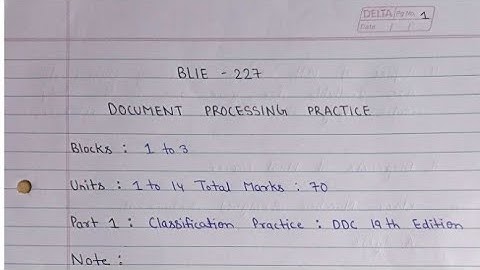 DELTA Pg No. 1
Date / /
BLIE - 227
DOCUMENT PROCESSING PRACTICE
Blocks : 1 to 3
Units : 1 to 14 Total Marks : 70
Part 1 : Classification Practice : DDC 19th Edition
Note :